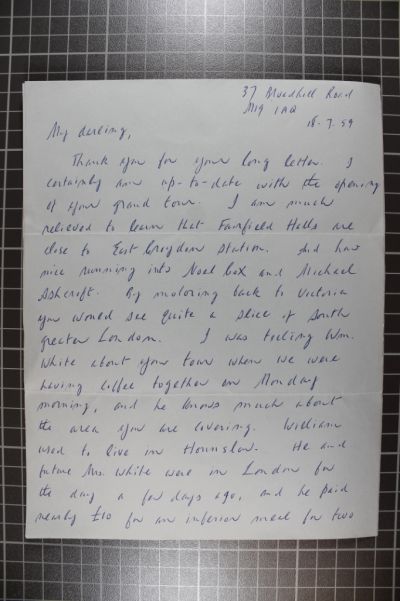 37 Broadhill Road
M19 1AQ
18.7.59
My darling,
Thank you for your long letter. I
certainly am up-to-date with the opening
of your grand tour. I am much
relieved to learn that Fairfield Halls are
close to East Croydon station. And how
nice running into Noel Cox and Michael
Ashcroft. By motoring back to Victoria
you would see quite a slice of South
greater London. I was telling Wm.
White about your tour when we were
having coffee together on Monday
morning, and he knows much about
the area you are covering. William
used to live in Hounslow. He and
future Mrs. White were in London for
the day a few days ago, and he paid
nearly £10 for an inferior meal for two